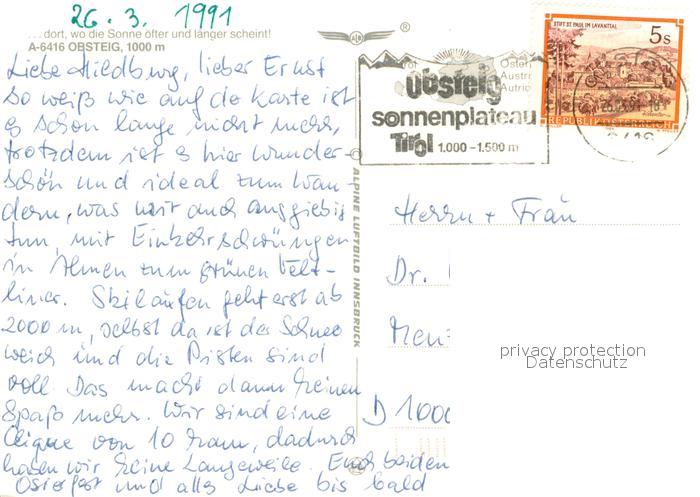 26. 3. 1991
...dort, wo die Sonne öfter und länger scheint!
A-6416 OBSTEIG, 1000 m
Liebe Hiedburg, lieber Ernst
so weiß wie auf de Karte ist
es schon lange nicht mehr,
trotzdem ist es hier wunder-
schön und ideal zum Wan-
dern, was wir auch ausgiebig
tun, mit Einkehrschwüngen
in Almen zum grünen Velt-
liner. Skilaufen geht erst ab
2000 m, selbst da ist der Schnee
weich und die Pisten sind
voll. Das macht dann keinen
Spaß mehr. Wir sind eine
Clique von 10 Mann, dadurch
haben wir keine Langeweile. Euch beiden
Osterfest und alles Liebe bis bald
ALPINE LUFTBILD INNSBRUCK
®
Öster
Austri
Autric
Obsteig
sonnenplateau
Tirol 1.000-1.500 m
STIFT ST. PAUL IM LAVANTTAL
5 S
REPUBLIK ÖSTERREICH
26.-3.91-18
6416
Herrn + Frau
Dr.
D 1000
privacy protection
Datenschutz